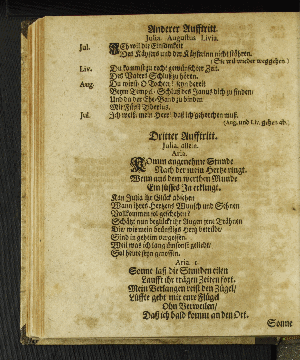 Anderer Aufftritt.
Julia. Augustus Livia.
Jul. Ich will die Einsamkeit
Des Käysers und der Käyserinn nicht stöhren.
(Sie will wieder weggehen.)
Liv. Du kommst zu recht gewünschter Zeit.
Des Vaters Schluß zu hören.
Aug. Du must / O Tochter! seyn bereit
Beym Tempel des Janus dich zu finden /
Und da der Ehe-Band zu binden
Mit Fürst Tiberius.
Jul. Ich weiß mein Herr / daß ich gehorchen muß.
(Aug. und Liv. gehen ab.)
Dritter Aufftritt.
Julia, allein.
Aria.
Komm angenehme Stunde
Nach der mein Hertze ringt.
Wenn aus dem werthen Munde
Ein süsses Ja erklingt.
Kan Julia ihr Glück absehen
Wann ihres Hertzens Wunsch und Sehnen
Vollkommen sol geschehen?
Schätzt nun beglückt ihr Augen jene Thränen
Die wie mein brünstigs Hertz betrübt /
Sind in geheim vergossen.
Weil was ich lang umsonst geliebt /
Sol heute seyn genossen.
Aria.
Sonne laß die Stunden eilen
Laufft ihr trägen Zeiten fort.
Mein Verlangen reist den Zügel /
Lüffte gebt mir eure Flügel
Ohn Verweilen /
Daß ich bald komm an den Ort.
Sonne